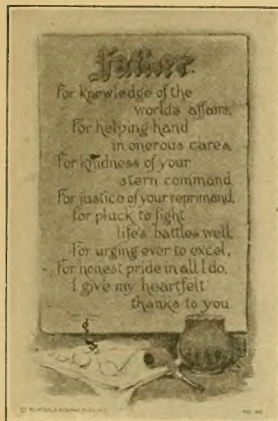 Father
For knowledge of the
world's affairs,
For helping hand
in onerous cares
For kindness of your
stern command
For justice of your reprimand,
For pluck to fight
life's battles well
For urging ever to excel,
For honest pride in all I do,
I give my heartfelt
thanks to you.